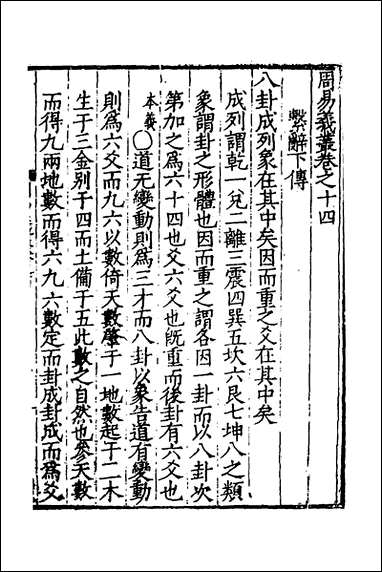 周易義叢卷之十四
繫辭下傳
八卦成列象在其中矣因而重之爻在其中矣
成列謂乾一兌二離三震四巽五坎六艮七坤八之類
象謂卦之形體也因而重之謂各因一卦而以八卦次
第加之為六十四也爻六爻也既重而後卦有六爻也
本義〇道无變動則為三才而八卦以象告道有變動
則為六爻而九六以數倚天數肇于一地數起于二木
生于三金别于四而土備于五此數之自然也參天數
而得九兩地數而得六九六數定而卦成卦成而為爻